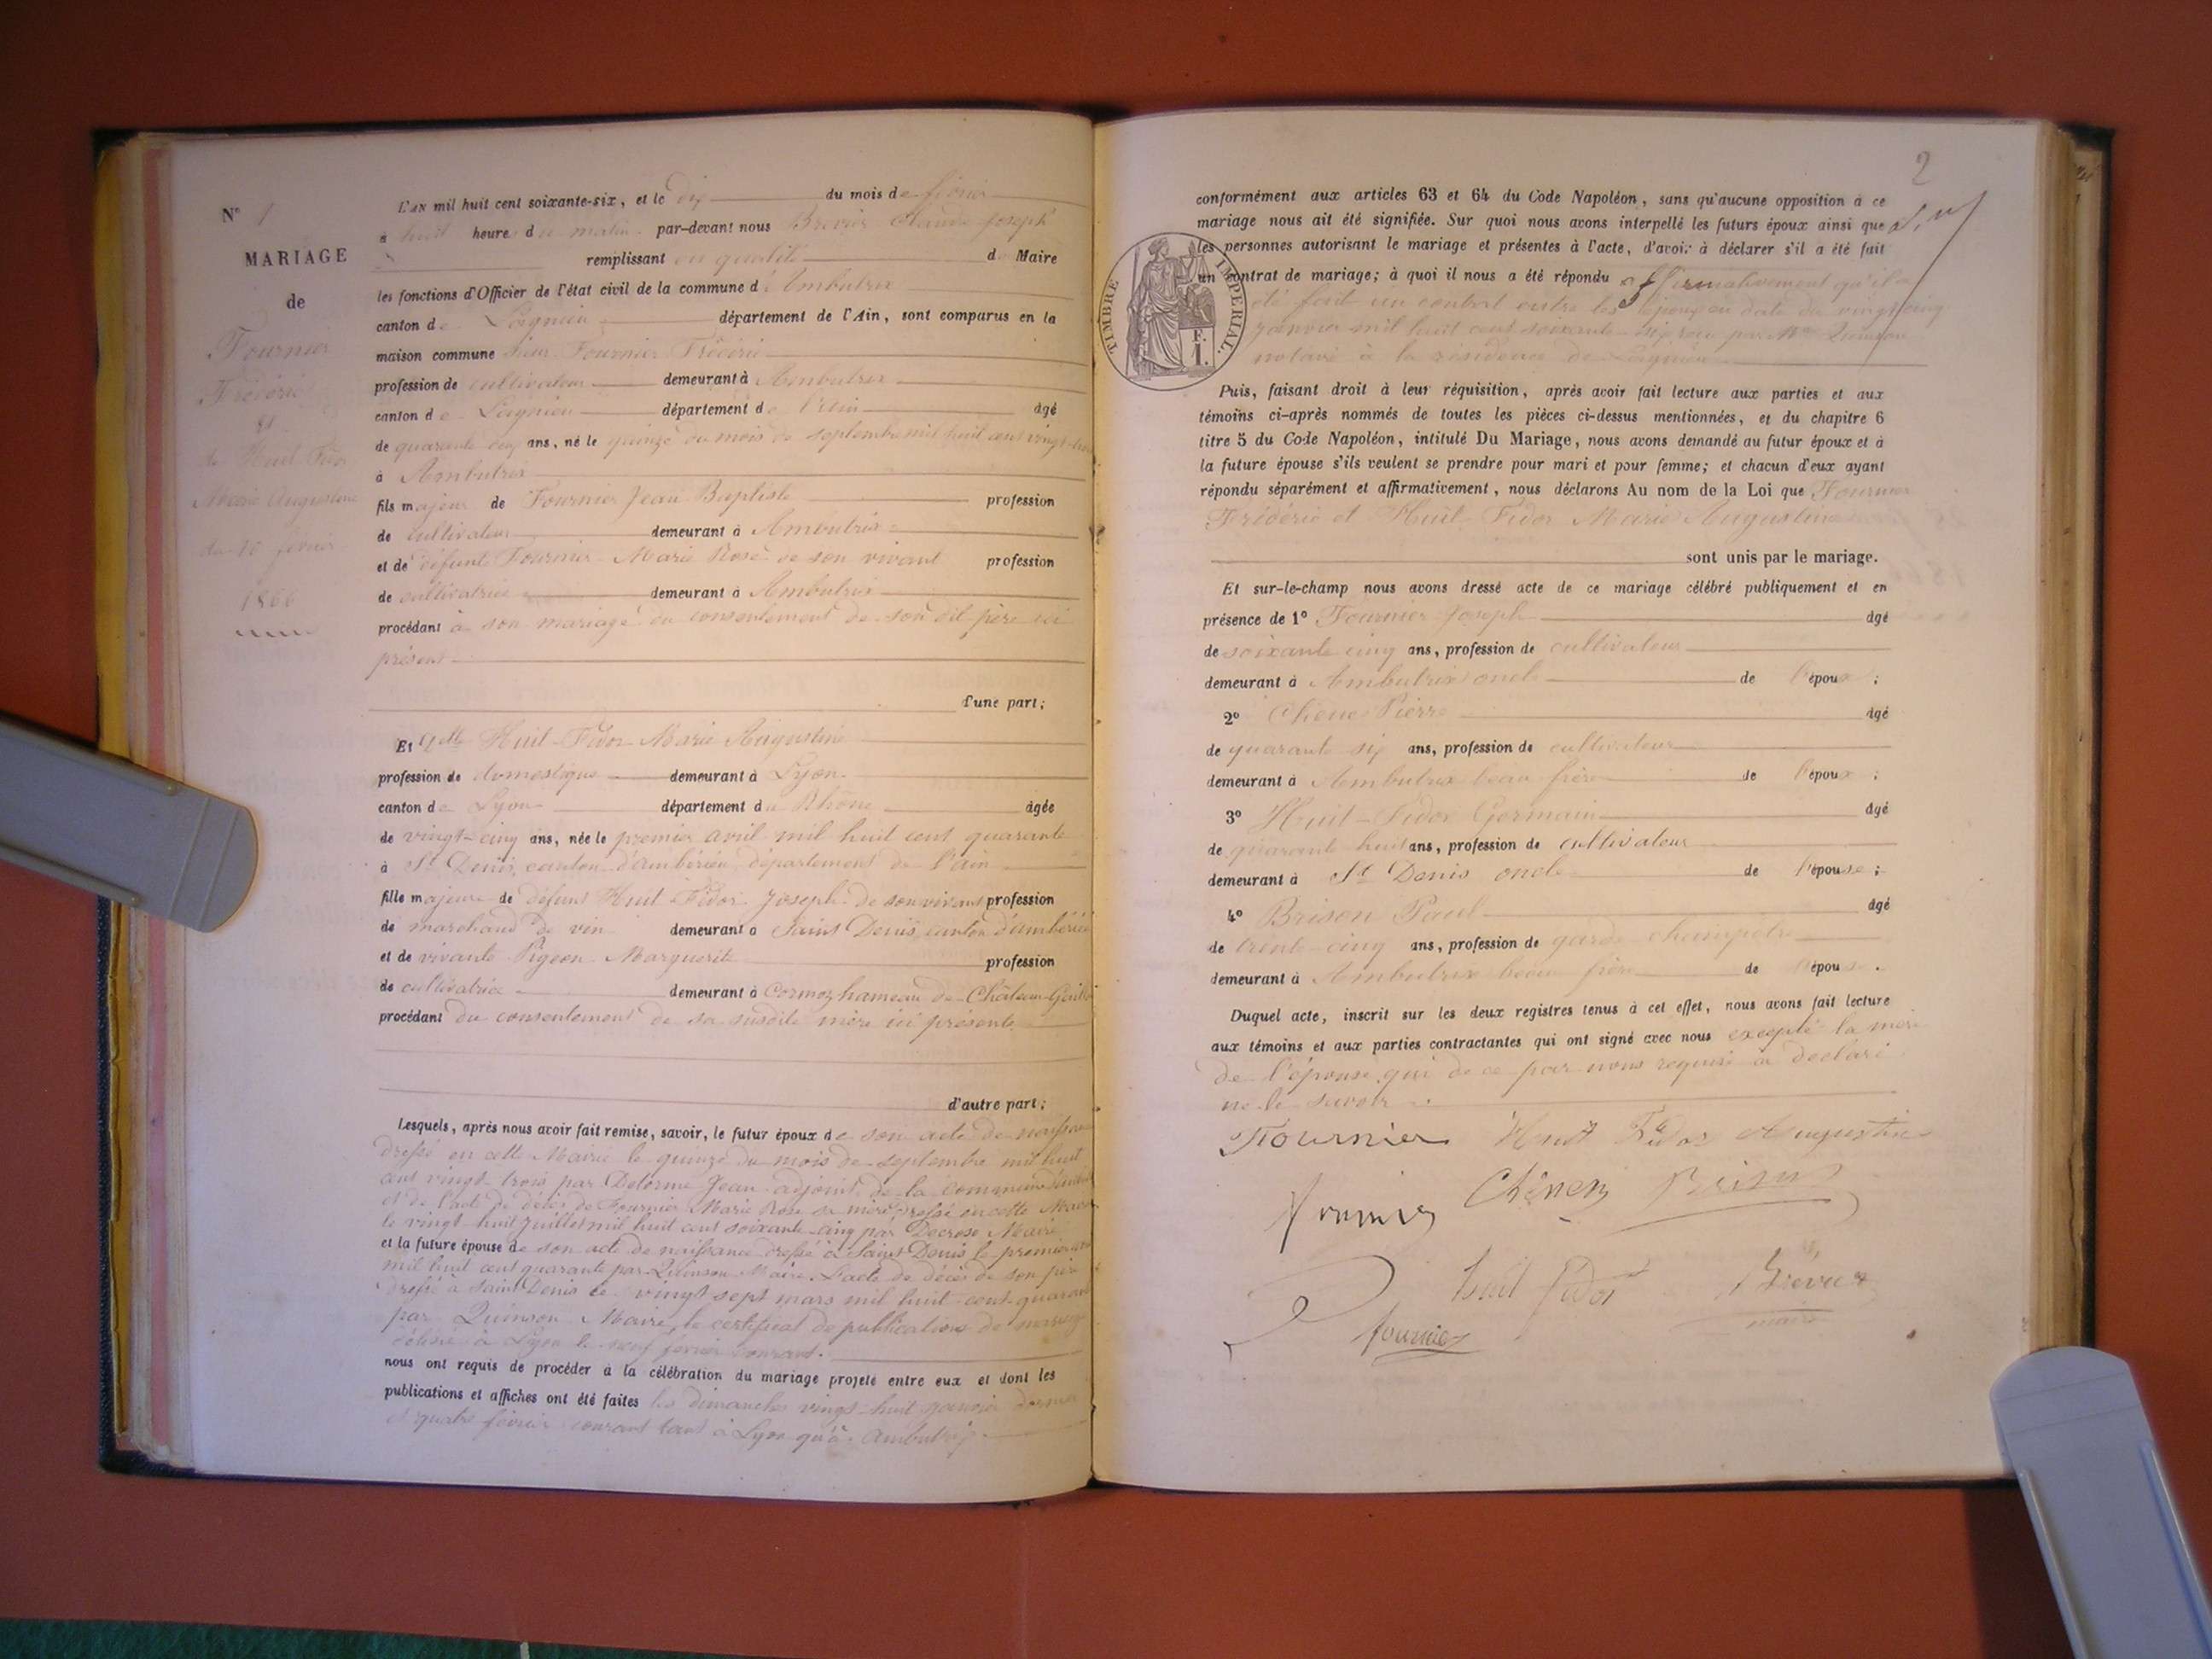 N° 1
MARIAGE
de
Fournier
Frédéric
et
de Huit-Fidor
Marie Augustine
du 10 février
1866
L'AN mil huit cent soixante-six, et le dix du mois de février
à huit heures du matin par-devant nous Brevier Claude Joseph
remplissant en qualité de Maire
les fonctions d'Officier de l'état civil de la commune d'Ambutrix
canton de Lagnieu département de l'Ain, sont comparus en la
maison commune sieur Fournier Frédéric
profession de cultivateur demeurant à Ambutrix
canton de Lagnieu département de l'Ain âgé
de quarante deux ans, né le quinze du mois de septembre mil huit cent vingt-trois
à Ambutrix
fils majeur de Fournier Jean Baptiste profession
de cultivateur demeurant à Ambutrix
et de défunte Fournier Marie Rose de son vivant profession
de cultivatrice demeurant à Ambutrix
procédant à son mariage du consentement de son dit père ici
présent
d'une part;
Et Dlle Huit-Fidor Marie Augustine
profession de domestique demeurant à Lyon
canton de Lyon département du Rhône âgée
de vingt-cinq ans, née le premier avril mil huit cent quarante
à St Denis, canton d'ambérieu département de l'ain
fille majeure de défunt Huit-Fidor Joseph de son vivant profession
de marchand de vin demeurant à Saint Denis, canton d'ambérieu
et de vivante Pigeon Marguerite profession
de cultivatrice demeurant à Cormoz hameau de Château-Gaillard
procédant du consentement de sa susdite mère ici présente
d'autre part;
Lesquels, après nous avoir fait remise, savoir, le futur époux de son acte de naissance
dressé en cette Mairie le quinze du mois de septembre mil huit
cent vingt-trois par Delorme Jean adjoint de la commune
et de l'acte de décès de Fournier Marie Rose sa mère dressé en cette Mairie
le vingt-huit juillet mil huit cent soixante-cinq par Decrose Maire
et la future épouse de son acte de naissance dressé à Saint Denis le premier avril
mil huit cent quarante par Quinson Maire. L'acte de décès de son père
dressé à Saint Denis le vingt sept mars mil huit cent quarante
par Quinson Maire, le certificat de publications de mariage
délivré à Lyon le neuf février courant.
nous ont requis de procéder à la célébration du mariage projeté entre eux et dont les
publications et affiches ont été faites les dimanches vingt-huit janvier dernier
et quatre février courant tant à Lyon qu'à Ambutrix
2
conformément aux articles 63 et 64 du Code Napoléon, sans qu'aucune opposition à ce
mariage nous ait été signifiée. Sur quoi nous avons interpellé les futurs époux ainsi que
les personnes autorisant le mariage et présentes à l'acte, d'avoir à déclarer s'il a été fait
un contrat de mariage; à quoi il nous a été répondu affirmativement qu'il a
été fait un contrat entre les époux en date du vingt cinq
janvier mil huit cent soixante-six reçu par Me Quinson
notaire à la résidence de Lagnieu
TIMBRE IMPERIAL.
F.
1.
Puis, faisant droit à leur réquisition, après avoir fait lecture aux parties et aux
témoins ci-après nommés de toutes les pièces ci-dessus mentionnées, et du chapitre 6
titre 5 du Code Napoléon, intitulé Du Mariage, nous avons demandé au futur époux et à
la future épouse s'ils veulent se prendre pour mari et pour femme; et chacun d'eux ayant
répondu séparément et affirmativement, nous déclarons Au nom de la Loi que Fournier
Frédéric et Huit-Fidor Marie Augustine
sont unis par le mariage.
Et sur-le-champ nous avons dressé acte de ce mariage célébré publiquement et en
présence de 1° Fournier Joseph âgé
de soixante cinq ans, profession de cultivateur
demeurant à Ambutrix oncle de l'époux;
2° Chêne Pierre âgé
de quarante six ans, profession de cultivateur
demeurant à Ambutrix beau frère de l'époux;
3° Huit-Fidor Germain âgé
de quarante huit ans, profession de cultivateur
demeurant à St Denis oncle de l'épouse;
4° Brison Paul âgé
de trente-cinq ans, profession de garde champêtre
demeurant à Ambutrix beau frère de l'épouse.
Duquel acte, inscrit sur les deux registres tenus à cet effet, nous avons fait lecture
aux témoins et aux parties contractantes qui ont signé avec nous excepté la mère
de l'épouse qui de ce par nous requise a déclaré
ne le savoir
Fournier Huit Fidor Augustine
Fournier Chêne Brison
huit fidor Brevier
maire
fournier